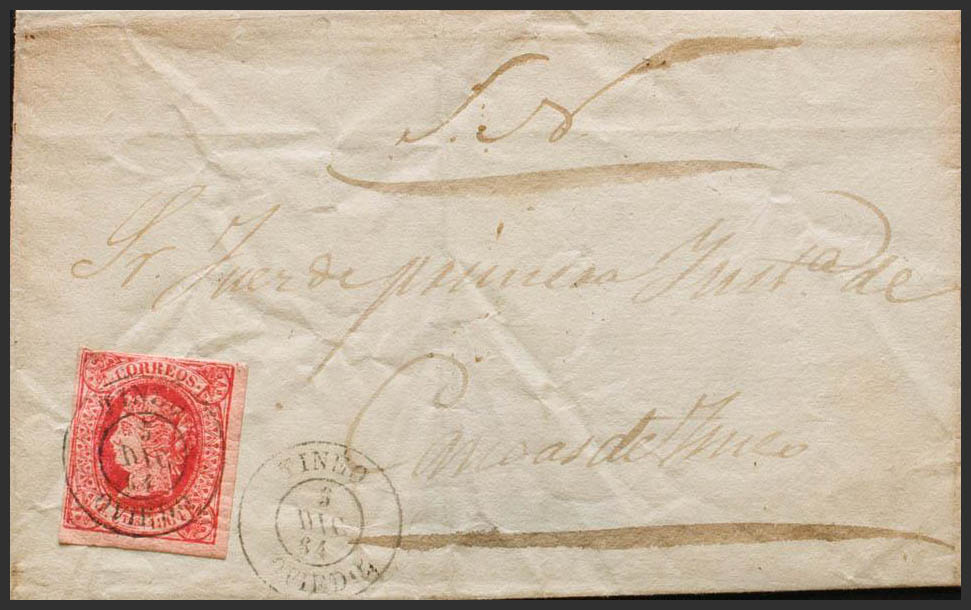 S. N.
Sr. Juez de primera Instª de
Cangas de Tineo
CORREOS
TINEO
3
DIC
64
OVIEDO
TINEO
3
DIC
64
OVIEDO